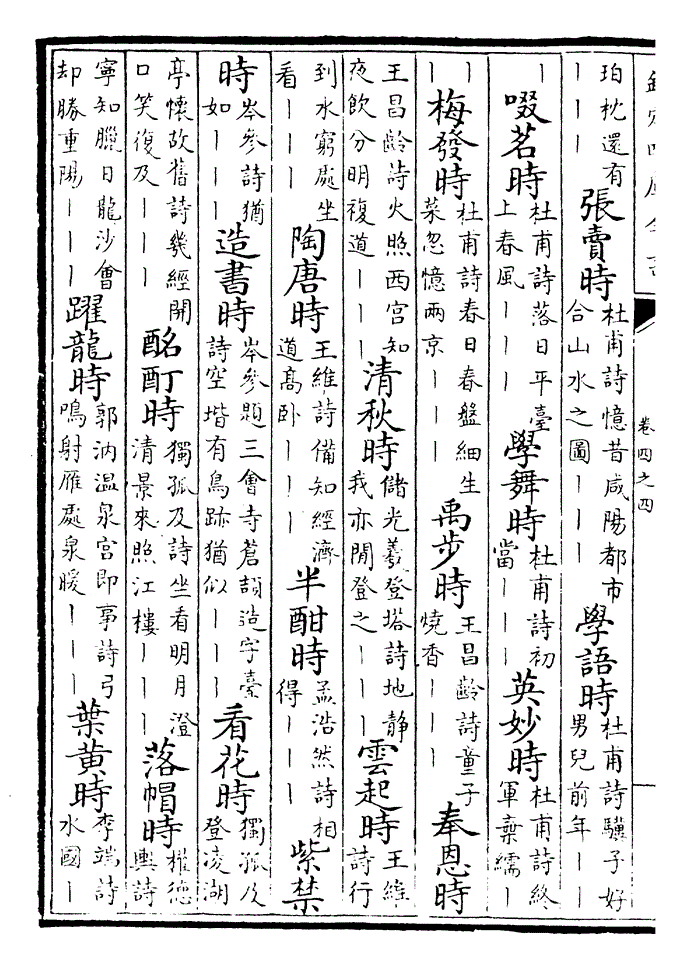 欽定四庫全書
卷四之四
珀枕還有｜｜｜張賣時杜甫詩憶昔咸陽都市合山水之圖｜｜｜學語時杜甫詩驥子好男兒前年｜｜
｜啜茗時杜甫詩落日平臺上春風｜｜｜學舞時杜甫詩初當｜｜｜英妙時杜甫詩終軍棄繻｜
｜｜梅發時杜甫詩春日春盤細生菜忽憶兩京｜｜｜禹步時王昌齡詩童子燒香｜｜｜奉恩時
王昌齡詩火照西宮知夜飲分明複道｜｜｜清秋時儲光羲登塔詩地静我亦閒登之｜｜｜雲起時王維詩行
到水窮處坐看｜｜｜陶唐時王維詩備知經濟道高卧｜｜｜半酣時孟浩然詩相得｜｜｜紫禁
時岑參詩猶如｜｜｜造書時岑參題三會寺蒼頡造字臺詩空堦有鳥跡猶似｜｜｜看花時獨孤及登凌湖
亭懷故舊詩幾經開口笑復及｜｜｜酩酊時獨孤及詩坐看明月澄清景來照江樓｜｜｜落帽時權德輿詩
寧知臘日龍沙會却勝重陽｜｜｜躍龍時郭汭温泉宮即事詩弓鳴射雁處泉暖｜｜｜葉黄時李端詩水國｜